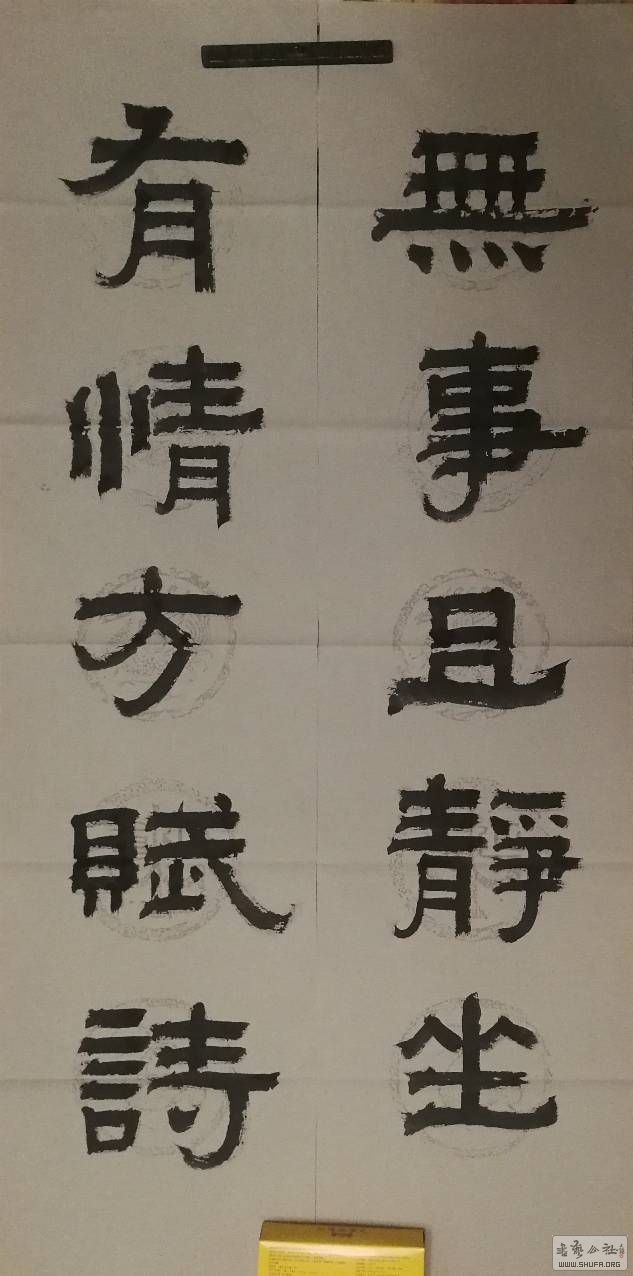 無事且靜坐
有情方賦詩
書藝公社
WWW.SHUFA.ORG